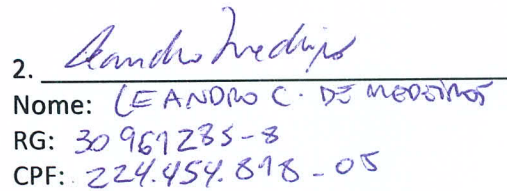 2. Leandro Medeiros
Nome: LEANDRO C. DE MEDEIROS
RG: 30 961285-8
CPF: 224.454.818-05